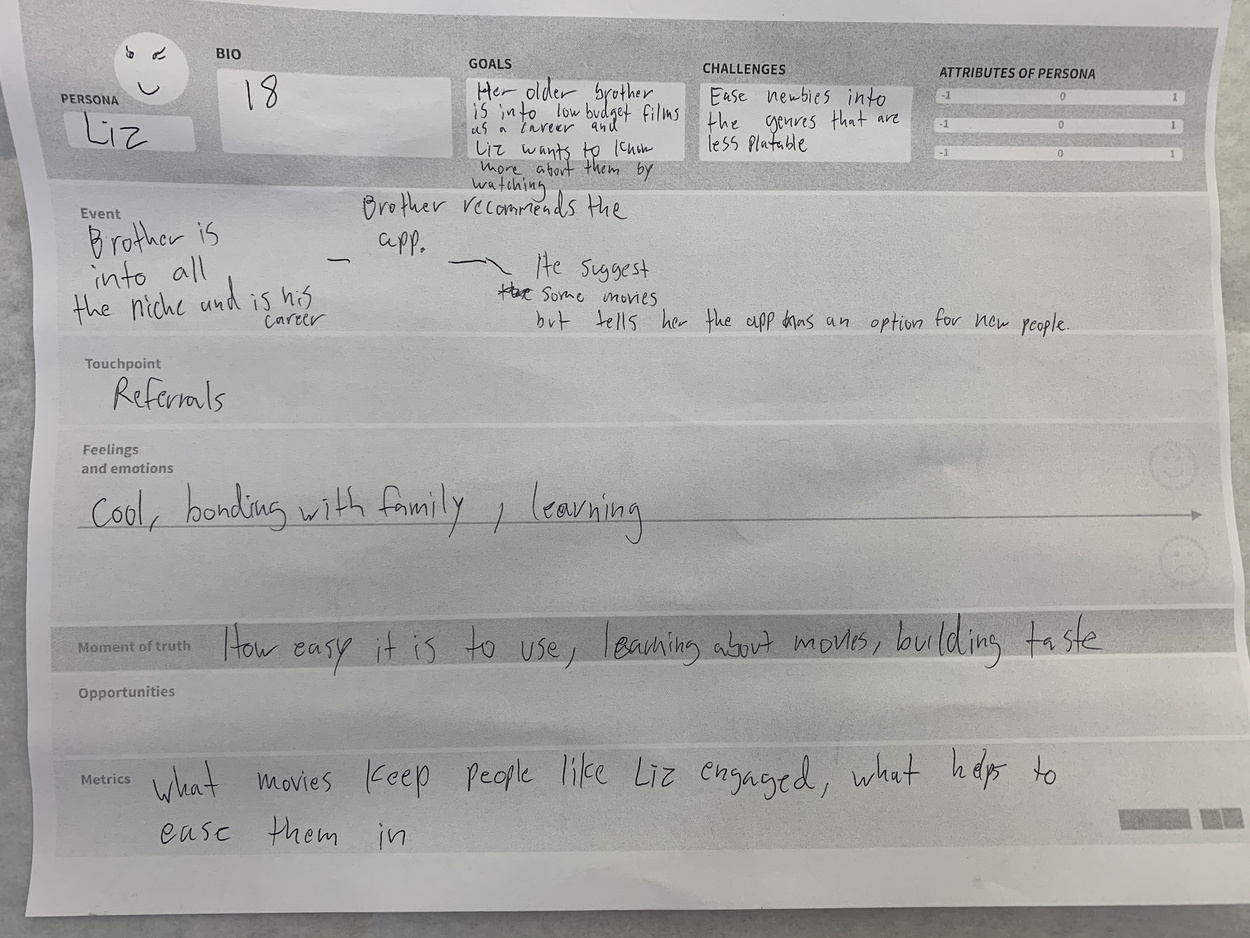 PERSONA
Liz
BIO
18
GOALS
Her older brother
is into low budget films
as a career and
Liz wants to know
more about them by
watching
CHALLENGES
Ease newbies into
the genres that are
less platable
ATTRIBUTES OF PERSONA
-1 0 1
-1 0 1
-1 0 1
Event
Brother is
into all
the niche and is his
career
Brother recommends the
app.
He suggest
some movies
but tells her the app has an option for new people.
Touchpoint
Referrals
Feelings
and emotions
Cool, bonding with family, learning
Moment of truth
How easy it is to use, learning about movies, building taste
Opportunities
Metrics
what movies keep people like Liz engaged, what helps to
ease them in